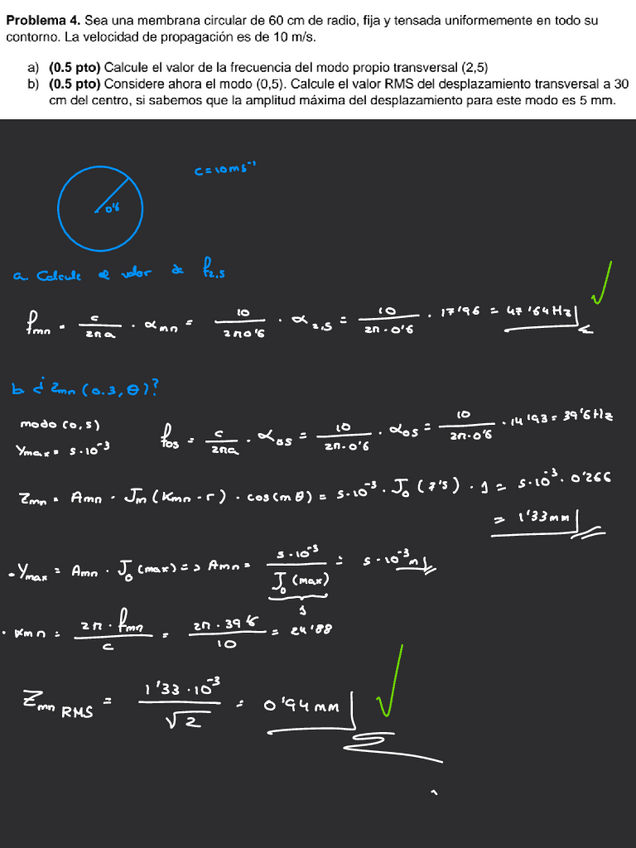 Problema 4. Sea una membrana circular de 60 cm de radio, fija y tensada uniformemente en todo su
contorno. La velocidad de propagación es de 10 m/s.
a) (0.5 pto) Calcule el valor de la frecuencia del modo propio transversal (2,5)
b) (0.5 pto) Considere ahora el modo (0,5). Calcule el valor RMS del desplazamiento transversal a 30
cm del centro, si sabemos que la amplitud máxima del desplazamiento para este modo es 5 mm.
c = 10 ms⁻¹
0'6
a. Calcule el valor de f2,5
fmn = c/2πa · αmn = 10/2π0'6 · α2,5 = 10/2π·0'6 · 17'96 = 47'64 Hz
b. ¿Zmn (0.3, θ)?
modo (0,5)
Ymax = 5·10⁻³
f05 = c/2πa · α05 = 10/2π·0'6 · α05 = 10/2π·0'6 · 14'93 = 39'6 Hz
Zmn = Amn · Jm (Kmn · r) · cos(mθ) = 5·10⁻³ · J0 (7'5) · 1 = 5·10⁻³ · 0'266
= 1'33mm
· Ymax = Amn · J0 (max) => Amn = 5·10⁻³/J0 (max) = 5·10⁻³ m
1
· Kmn = 2π · fmn/c = 2π · 39'6/10 = 24'88
Zmn RMS = 1'33·10⁻³/√2 = 0'94 mm